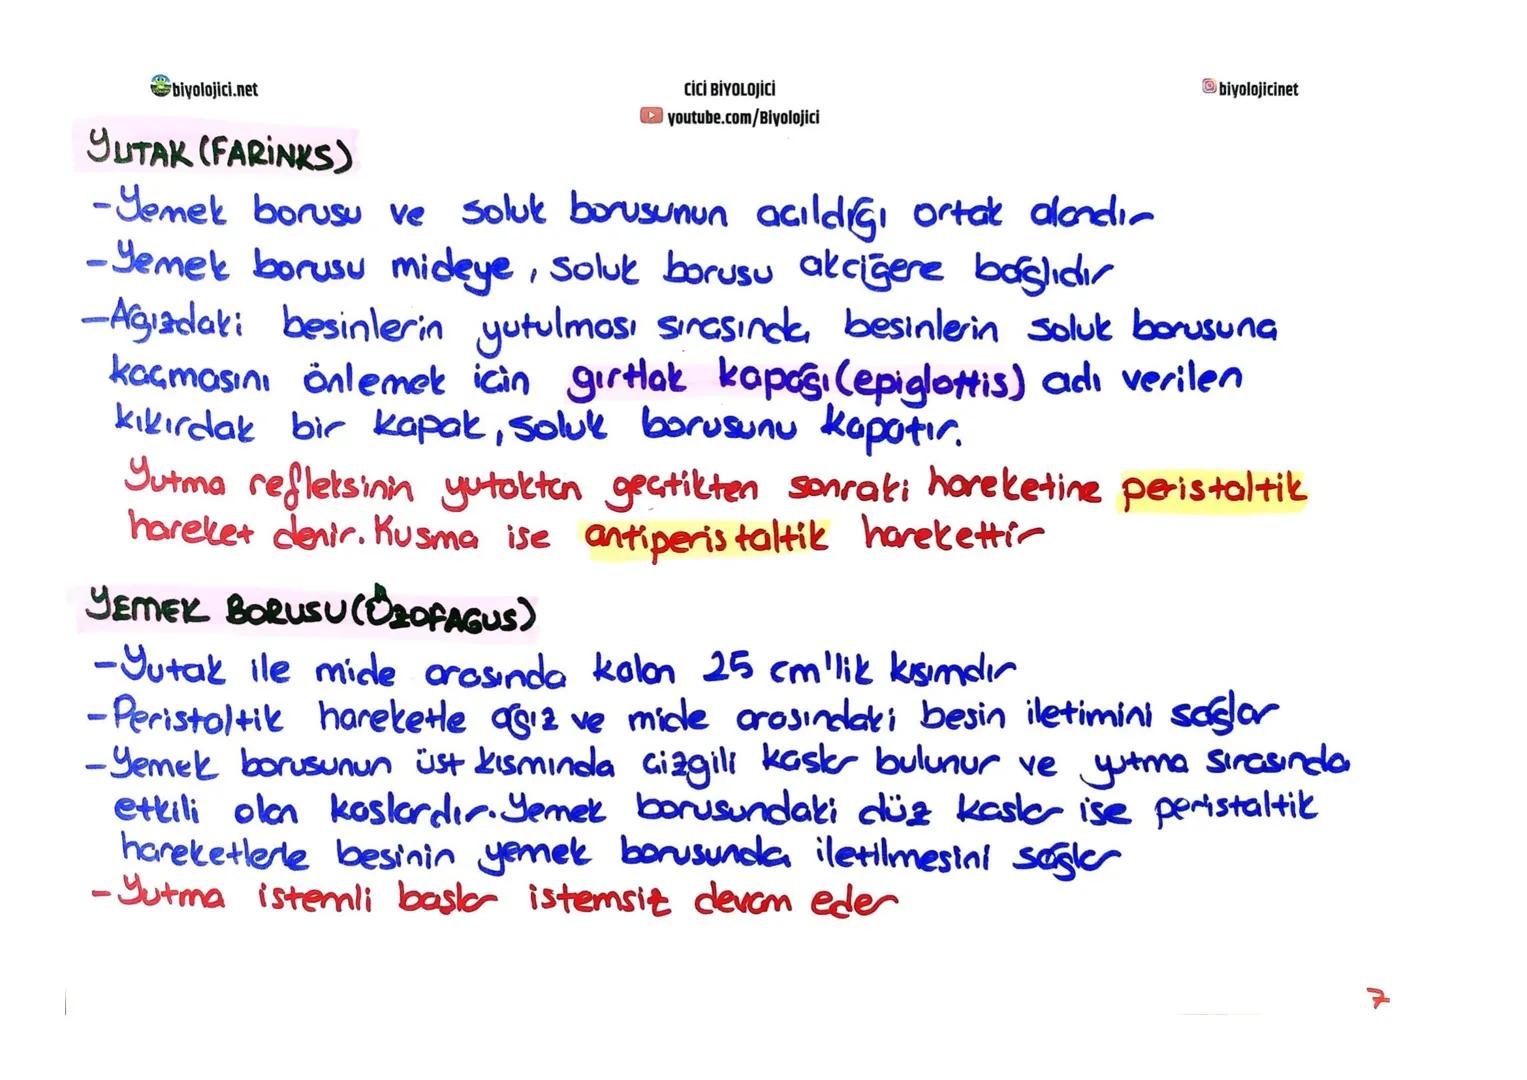 biyolojici.net
CİCİ BİYOLOJİCİ
biyolojicinet
youtube.com/Biyolojici
YUTAK (FARİNKS)
-Yemek borusu ve soluk borusunun açıldığı ortak alandır
-Yemek borusu mideye, soluk borusu akciğere bağlıdır
-Ağızdaki besinlerin yutulması sırasında, besinlerin soluk borusuna
kaçmasını önlemek için gırtlak kapağı (epiglottis) adı verilen
kıkırdak bir kapak, soluk borusunu kapatır.
Yutma refleksinin yutaktan geçtikten sonraki hareketine peristaltik
hareket denir. Kusma ise antiperistaltik harekettir
YEMEK BORUSU (ÖZOFAGUS)
-Yutak ile mide arasında kalan 25 cm'lik kısımdır
-Peristaltik hareketle ağız ve mide arasındaki besin iletimini sağlar
-Yemek borusunun üst kısmında çizgili kaslar bulunur ve yutma sırasında
etkili olan kaslardır. Yemek borusundaki düz kaslar ise peristaltik
hareketlerle besinin yemek borusunda iletilmesini sağlar
-Yutma istemli başlar istemsiz devam eder
7